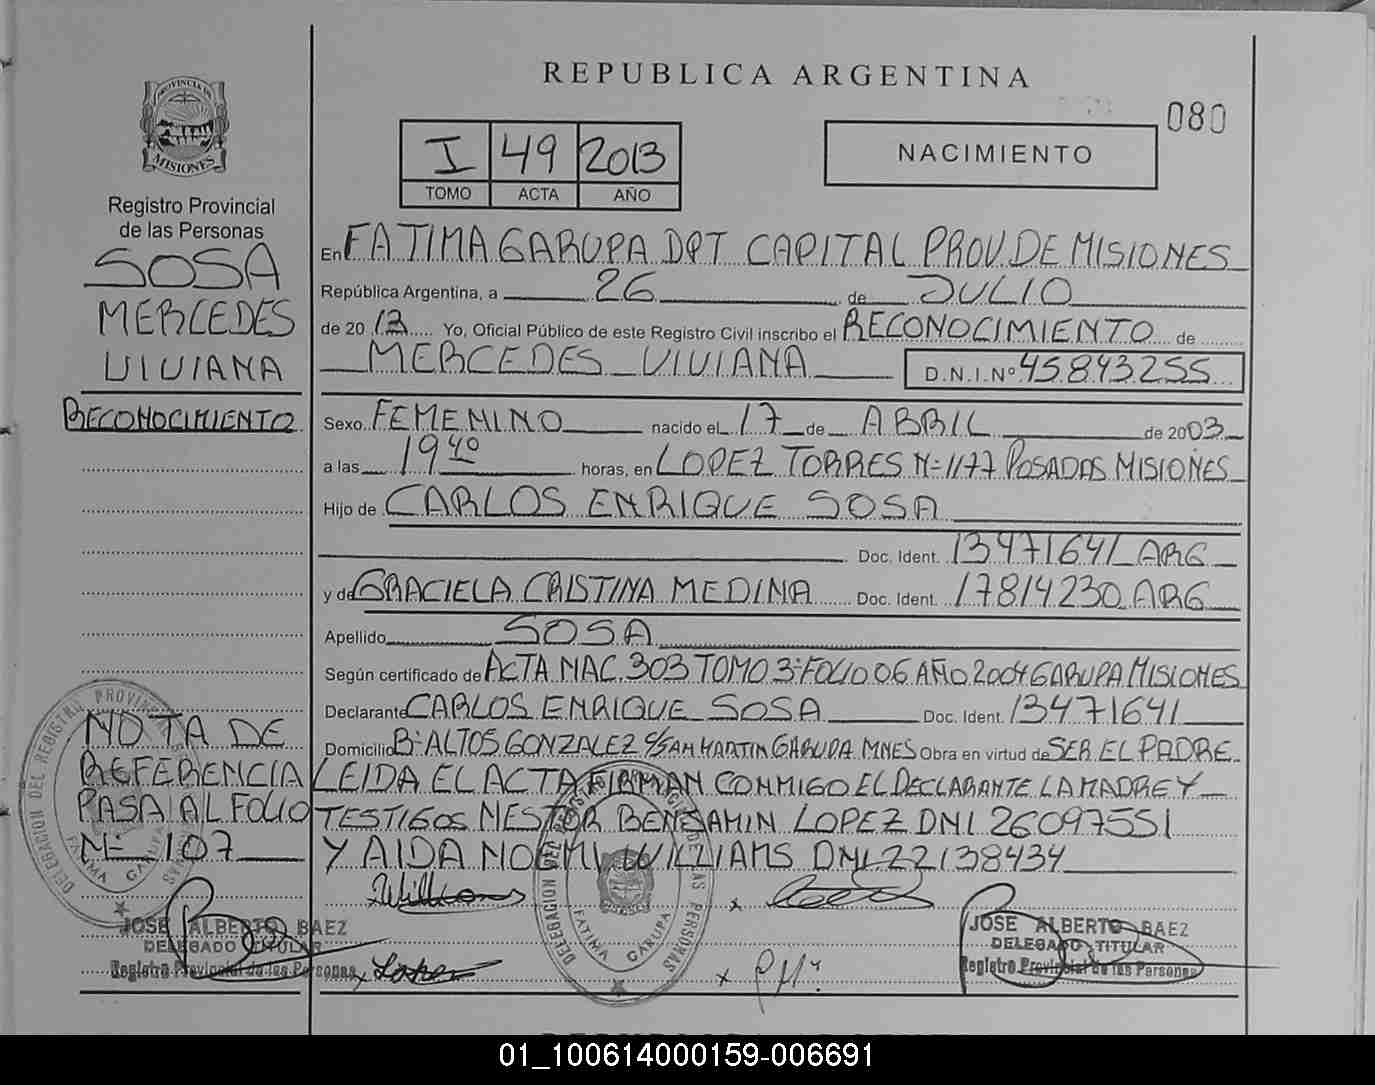 REPUBLICA ARGENTINA
080
PROVINCIA DE
MISIONES
Registro Provincial
de las Personas
I 49 2013
TOMO ACTA AÑO
NACIMIENTO
SOSA
MERCEDES
VIVIANA
RECONOCIMIENTO
En FATIMA GARUPA DPT CAPITAL PROV. DE MISIONES
República Argentina, a 26 de JULIO
de 2013 Yo, Oficial Público de este Registro Civil inscribo el RECONOCIMIENTO de
MERCEDES VIVIANA D.N.I. Nº 45.843.255
Sexo FEMENINO nacido el 17 de ABRIL de 2003
a las 19 40 horas, en LOPEZ TORRES Nº 1177 POSADAS MISIONES
Hijo de CARLOS ENRIQUE SOSA
Doc. Ident. 13471641 ARG
y de GRACIELA CRISTINA MEDINA Doc. Ident. 17814230 ARG
Apellido SOSA
Según certificado de ACTA NAC. 303 TOMO 3º FOLIO 06 AÑO 2004 GARUPA MISIONES
Declarante CARLOS ENRIQUE SOSA Doc. Ident. 13471641
Domicilio Bº ALTOS GONZALEZ C/SAN MARTIN GARUPA MNES Obra en virtud de SER EL PADRE
LEIDA EL ACTA FIRMAN CONMIGO EL DECLARANTE LA MADRE Y
TESTIGOS NESTOR BENJAMIN LOPEZ DNI 26097551
Y AIDA NOEMI WILLIAMS DNI 22138434
NOTA DE
REFERENCIA
PASA AL FOLIO
Nº 107
DELEGACION DEL REGISTRO PROVINCIAL DE LAS PERSONAS
FATIMA GARUPA
Williams
Lopez
DELEGACION DEL REGISTRO PROVINCIAL DE LAS PERSONAS
FATIMA GARUPA
JOSE ALBERTO BAEZ
DELEGADO TITULAR
Registro Provincial de las Personas
JOSE ALBERTO BAEZ
DELEGADO TITULAR
Registro Provincial de las Personas
01_100614000159-006691